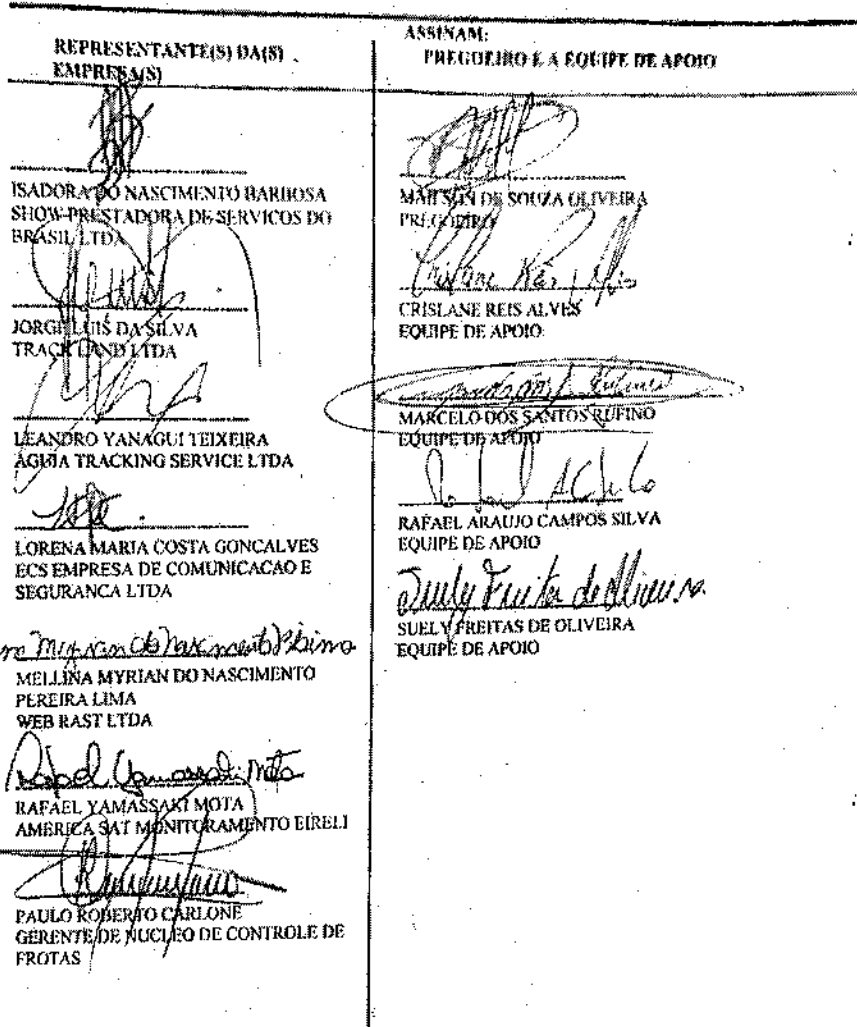 REPRESENTANTE(S) DA(S)
EMPRESA(S)
ISADORA DO NASCIMENTO BARBOSA
SHOW-PRESTADORA DE SERVICOS DO
BRASIL LTDA
JORGE LUIS DA SILVA
TRACK LAND LTDA
LEANDRO YANAGUI TEIXEIRA
AGUIA TRACKING SERVICE LTDA
LORENA MARIA COSTA GONCALVES
ECS EMPRESA DE COMUNICACAO E
SEGURANCA LTDA
MELLINA MYRIAN DO NASCIMENTO
PEREIRA LIMA
WEB RAST LTDA
Rafael Yamassaki Mota
RAFAEL YAMASSAKI MOTA
AMERICA SAT MONITORAMENTO EIRELI
PAULO ROBERTO CARLONE
GERENTE DE NUCLEO DE CONTROLE DE
FROTAS
ASSINAM:
PREGOEIRO E A EQUIPE DE APOIO
MAILSON DE SOUZA OLIVEIRA
PREGOEIRO
Crislane Reis Alves
CRISLANE REIS ALVES
EQUIPE DE APOIO
MARCELO DOS SANTOS RUFINO
EQUIPE DE APOIO
RAFAEL ARAUJO CAMPOS SILVA
EQUIPE DE APOIO
Suely Freitas de Oliveira
SUELY FREITAS DE OLIVEIRA
EQUIPE DE APOIO